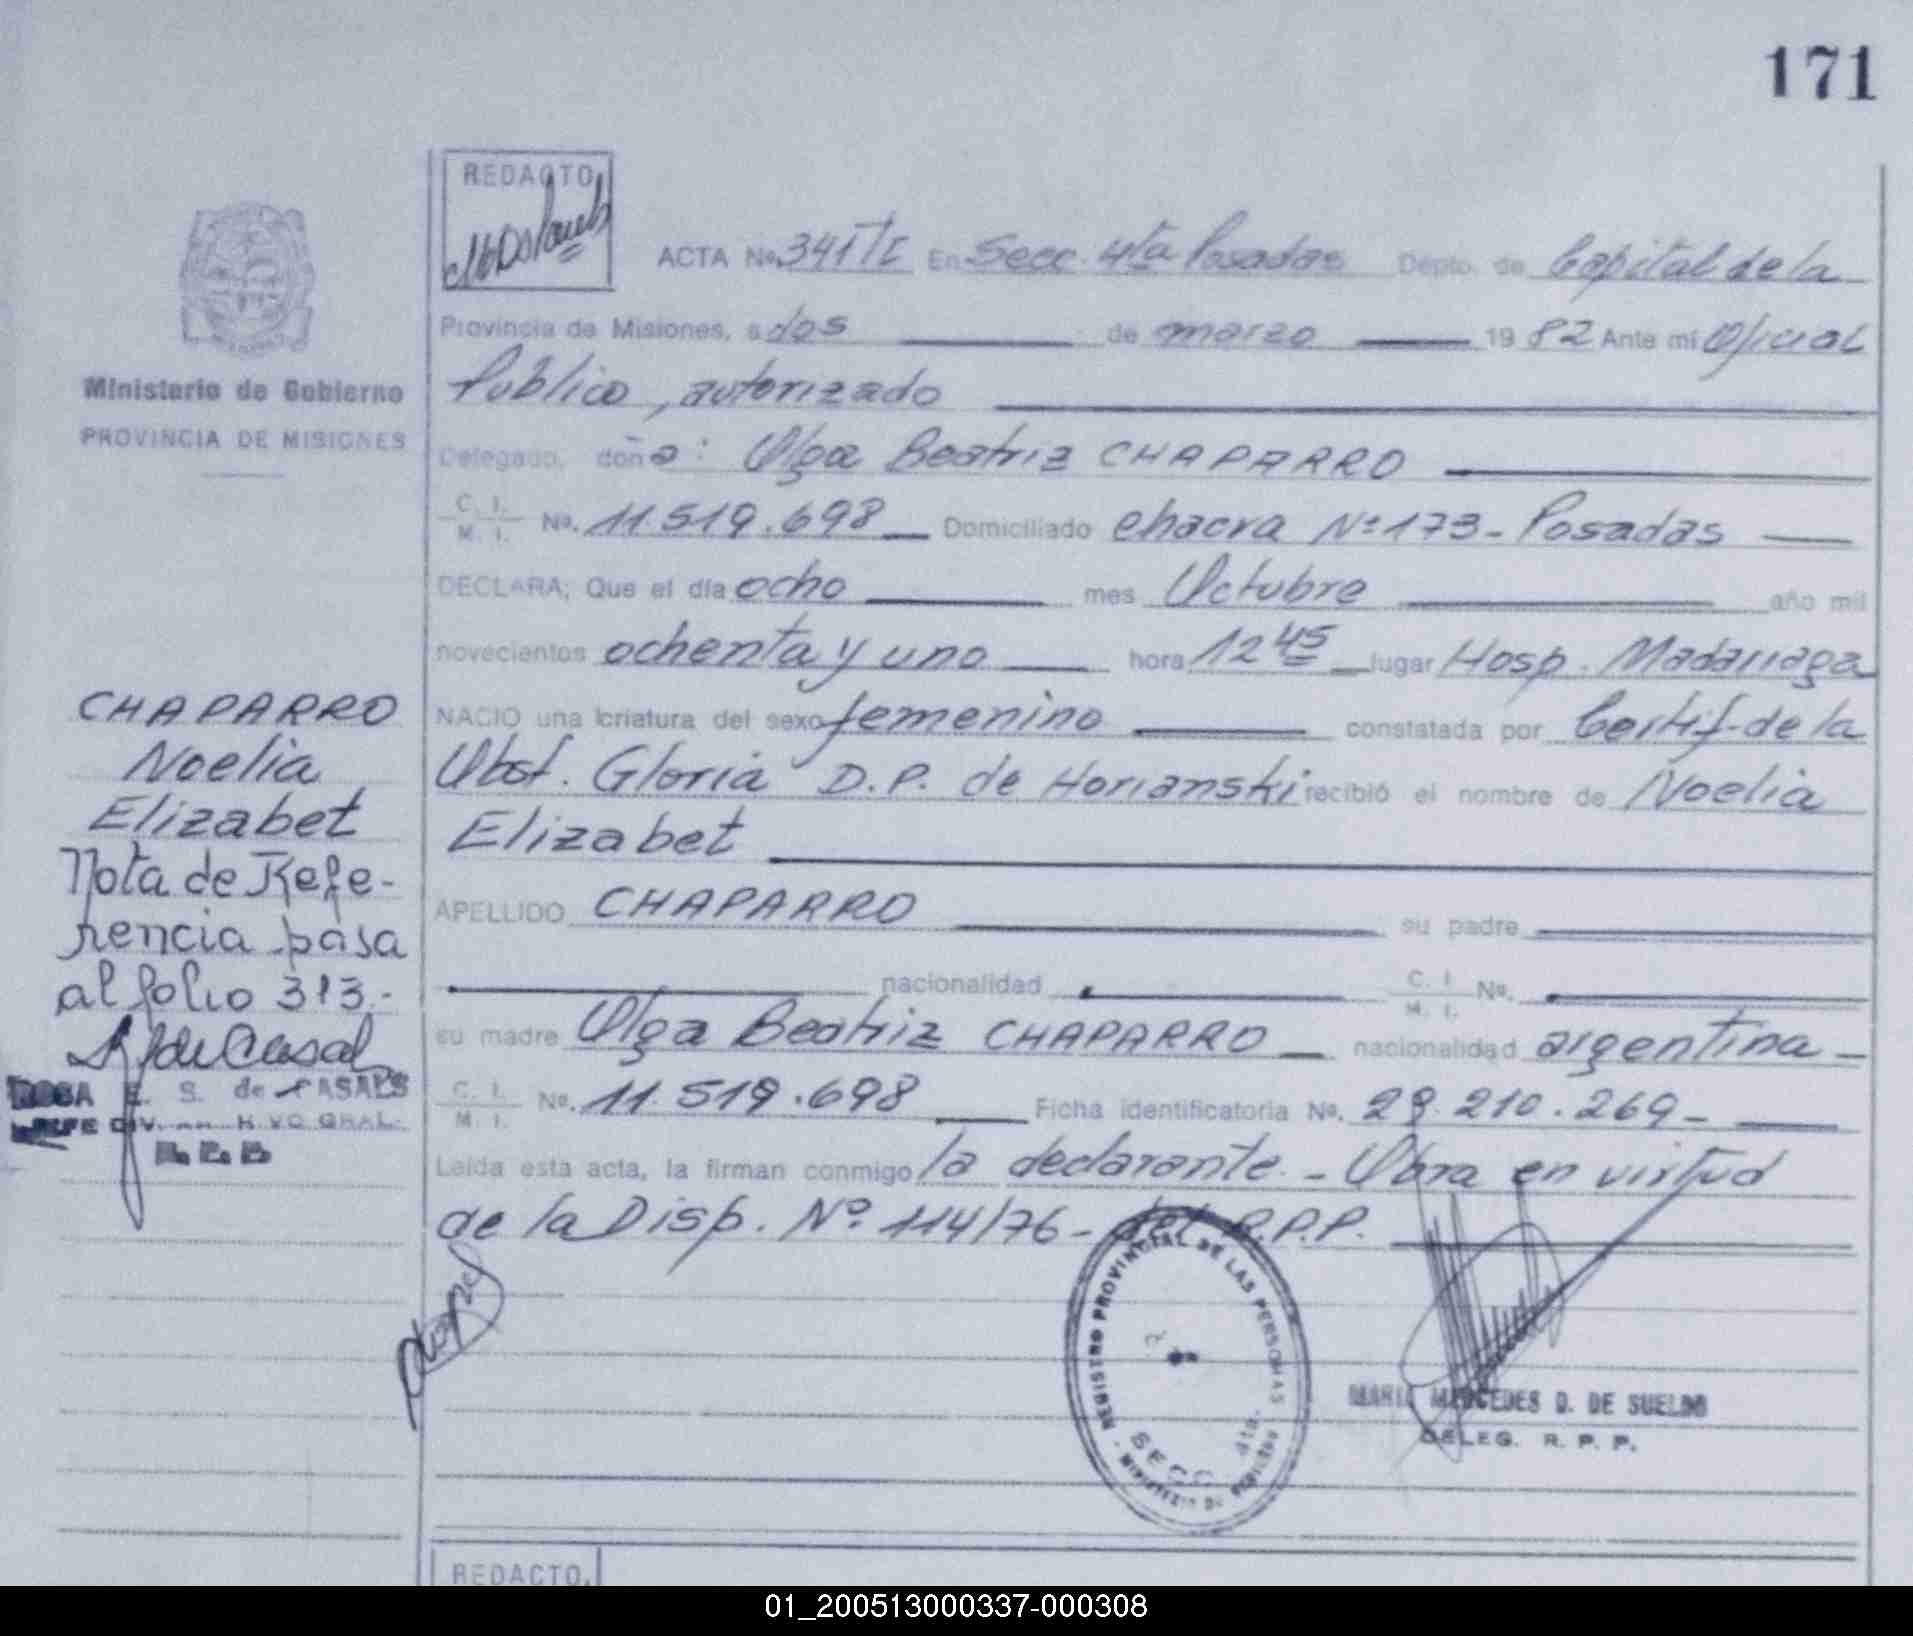 171
REDACTO
ACTA Nº 341 TI En Secc. 4ta Posadas Depto. de Capital de la
Provincia de Misiones, a dos de marzo 19 82 Ante mí Oficial
Público, autorizado
Ministerio de Gobierno
PROVINCIA DE MISIONES
Delegado, doña: Olga Beatriz CHAPARRO
C. I.
M. I. Nº. 11.519.698 Domiciliado chacra Nº 173 - Posadas
DECLARA; Que el día ocho mes Octubre año mil
novecientos ochenta y uno hora 12 45 lugar Hosp. Madariaga
NACIO una criatura del sexo femenino constatada por Certif. de la
Obst. Gloria D.P. de Horianski recibió el nombre de Noelia
Elizabet
APELLIDO CHAPARRO su padre
nacionalidad C. I.
M. I. Nº.
su madre Olga Beatriz CHAPARRO nacionalidad argentina
C. I.
M. I. Nº. 11.519.698 Ficha identificatoria Nº. 29.210.269
Leída esta acta, la firman conmigo la declarante. - Obra en virtud
de la Disp. Nº 114/76 - del R.P.P.
CHAPARRO
Noelia
Elizabet
Nota de Refe-
rencia pasa
al folio 313.-
ROSA E. S. de CASALS
JEFE DIV. GRAL.
REGISTRO PROVINCIAL DE LAS PERSONAS
SECC. 4ta.
MARIA MERCEDES D. DE SUELDO
DELEG. R. P. P.
REDACTO.
01_200513000337-000308